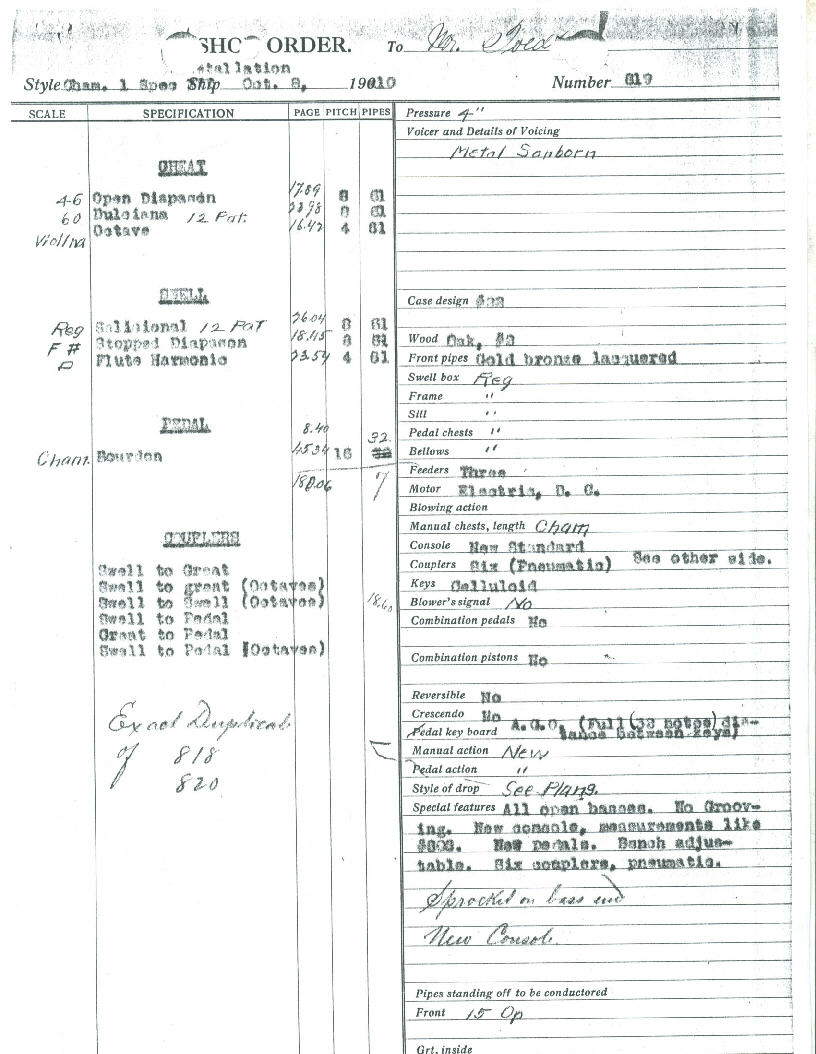 SHO ORDER. To Mr.
tallation
Style Cham. 1 Spec Ship Oct. 8, 1910 Number 819
SCALE SPECIFICATION PAGE PITCH PIPES
GREAT
46 Open Diapason 17.89 8 61
60 Dulciana 12 Pat. 8 61
Violina Octave 16.42 4 61
SWELL
Reg Salicional 12 Pat 26.04 8 61
F# Stopped Diapason 18.45 8 61
Flute Harmonic 23.54 4 61
PEDAL
8.40
32.
Cham. Bourdon 45.34 16
7
COUPLERS
Swell to Great
Swell to great (Octaves)
Swell to Swell (Octaves)
18.60
Swell to Pedal
Great to Pedal
Swell to Pedal (Octaves)
Exact Duplicate
of 818
820
Pressure 4"
Voicer and Details of Voicing
Metal Sanborn
Case design
Wood Oak, #2
Front pipes Gold bronze lacquered
Swell box Reg
Frame "
Sill "
Pedal chests "
Bellows "
Feeders Three
Motor Electric, D. C.
Blowing action
Manual chests, length Cham
Console New Standard
Couplers Six (Pneumatic) See other side.
Keys Celluloid
Blower's signal No
Combination pedals No
Combination pistons No
Reversible No
Crescendo No
Pedal key board A.G.O. (Full (32 notes) dis-
tance between keys)
Manual action New
Pedal action "
Style of drop See Plans.
Special features All open basses. No Groov-
ing. New console, measurements like
New pedals. Bench adjus-
table. Six couplers, pneumatic.
Sprocket on bass end
New Console.
Pipes standing off to be conductored
Front 15 Op
Grt. inside